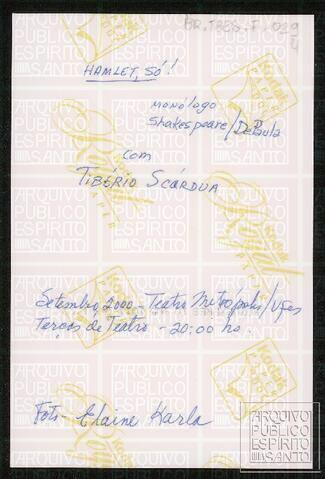 HAMLET, SÓ!
MONÓLOGO
Shakespeare/DePaula
com
TIBÉRIO SCÁRDUA
Setembro, 2000 - Teatro Metrópolis/Ufes
Terças de Teatro - 20:00 hs.
Foto - Elaine Karla
ARQUIVO
PÚBLICO
ESPÍRITO
SANTO